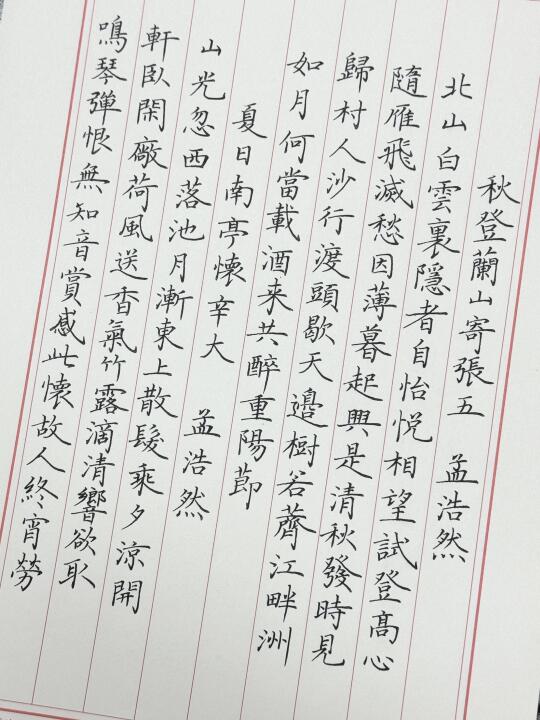 秋登蘭山寄張五 孟浩然
北山白雲裏隱者自怡悅相望試登高心
隨雁飛滅愁因薄暮起興是清秋發時見
歸村人沙行渡頭歇天邊樹若薺江畔洲
如月何當載酒来共醉重陽節
夏日南亭懷辛大 孟浩然
山光忽西落池月漸東上散髮乘夕涼開
軒臥閑廠荷風送香氣竹露滴清響欲取
鳴琴彈恨無知音賞感此懷故人終宵勞